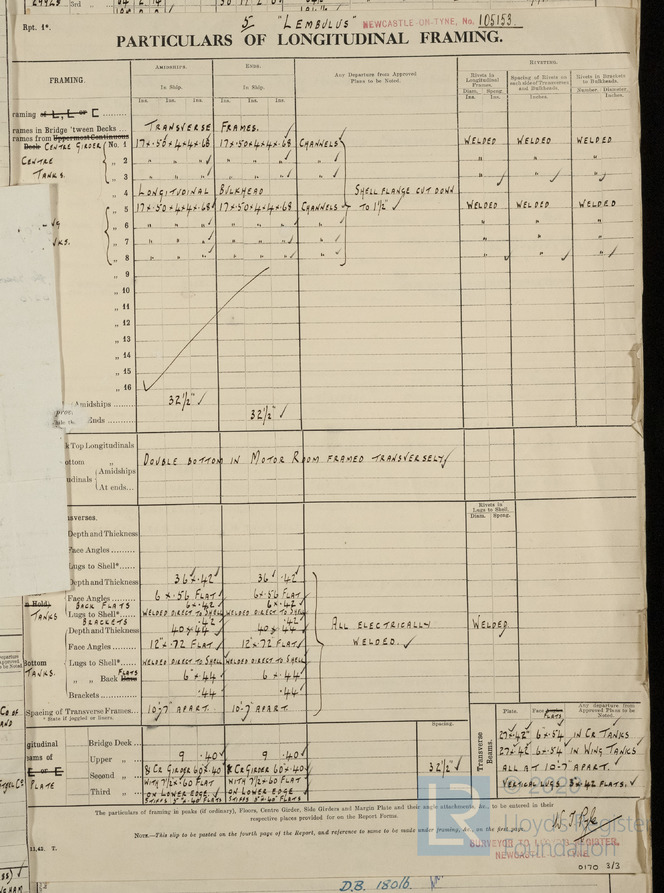 Rpt. 1*. 5 "LEMBULUS" NEWCASTLE-ON-TYNE, No. 105153.
PARTICULARS OF LONGITUDINAL FRAMING.
FRAMING. AMIDSHIPS. ENDS. Any Departure from Approved Plans to be Noted. RIVETING.
In Ship. In Ship. Rivets in Longitudinal Frames. Spacing of Rivets on each side of Transverses and Bulkheads. Rivets in Brackets to Bulkheads.
Diam. Spcng. Number. Diameter.
Ins. Ins. Ins. Ins. Ins. Ins. Ins. Ins. Inches. Inches.
raming of L, L or C
rames in Bridge 'tween Decks TRANSVERSE FRAMES. ✓
rames from Uppermost Continuous
Deck CENTRE GIRDER No. 1 17×·50×4×4×·68 17×·50×4×4×·68 CHANNELS WELDED WELDED WELDED
CENTRE „ 2 „ „ „ ✓ „ „ „ ✓ „ ✓ „ „ „
TANKS. „ 3 „ „ „ ✓ „ „ „ ✓ „ ✓ „ „ ✓ „ ✓
„ 4 LONGITUDINAL BULKHEAD SHELL FLANGE CUT DOWN
„ 5 17×·50×4×4×·68 ✓ 17×·50×4×4×·68 CHANNELS ✓ TO 1½" ✓ WELDED WELDED WELDED
„ 6 „ „ „ ✓ „ „ „ ✓ „ ✓ „ „ „
KS. „ 7 „ „ „ ✓ „ „ „ ✓ „ ✓ „ „ „
„ 8 „ „ „ ✓ „ „ „ ✓ „ ✓ „ ✓ „ ✓ „ ✓
„ 9
„ 10
„ 11
„ 12
„ 13
„ 14
„ 15
„ 16
Amidships 32½" ✓
Ends 32½" ✓
k Top Longitudinals
ottom „ DOUBLE BOTTOM IN MOTOR ROOM FRAMED TRANSVERSELY ✓
udinals Amidships
At ends
Rivets in Lugs to Shell.
nsverses. Diam. Spcng.
Depth and Thickness
Face Angles
Lugs to Shell*
Depth and Thickness 36 × ·42 36 × ·42
Face Angles 6 × ·56 FLAT 6 × ·56 FLAT
n Hold, BACK FLATS 6 × ·42 6 × ·42
TANKS Lugs to Shell* WELDED DIRECT TO SHELL WELDED DIRECT TO SHELL
BRACKETS ·42 ·42 ALL ELECTRICALLY WELDED.
Depth and Thickness 40 × ·44 40 × ·44
Face Angles 12" × ·72 FLAT 12" × ·72 FLAT WELDED. ✓
Bottom Lugs to Shell* WELDED DIRECT TO SHELL WELDED DIRECT TO SHELL
TANKS. „ „ Back FLATS Bars 6" × ·44 6 × ·44
Brackets ·44 ·44
Spacing of Transverse Frames 10'-7" APART. 10'-7" APART.
* State if joggled or liners.
Spacing. Transverse Beams. Plate. Face FLATS Any departure from Approved Plans to be Noted.
gitudinal Bridge Deck 27 × ·42 6 × ·54 IN CR. TANKS.
ams of Upper „ 9 ·40 ✓ 9 ·40 ✓ 27 × ·42 6 × ·54 IN WING TANKS
E or E Second „ & CR GIRDER 60 × ·40 & CR GIRDER 60 × ·40 32½" ✓ ALL AT 10'-7" APART.
PLATE WITH 7½ × ·60 FLAT WITH 7½ × ·60 FLAT VERTICAL LUGS 3 × ·42 FLATS.
Third „ ON LOWER EDGE ON LOWER EDGE
STIFFS 5" × ·40 FLATS STIFFS 5" × ·40 FLATS
The particulars of framing in peaks (if ordinary), Floors, Centre Girder, Side Girders and Margin Plate and their angle attachments, &c., to be entered in their
respective places provided for on the Report Forms.
NOTE.—This slip to be pasted on the fourth page of the Report, and reference to same to be made under framing, &c., on the first page.
SURVEYOR TO LLOYD'S REGISTER.
NEWCASTLE-ON-TYNE
Lloyd's Register
Foundation
0170 3/3
D.B. 180lb.